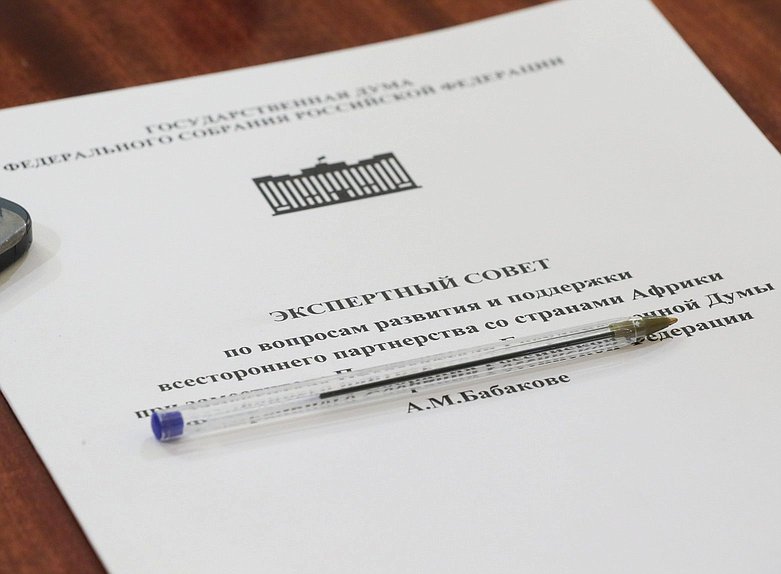 ГОСУДАРСТВЕННАЯ ДУМА
ФЕДЕРАЛЬНОГО СОБРАНИЯ РОССИЙСКОЙ ФЕДЕРАЦИИ
ЭКСПЕРТНЫЙ СОВЕТ
по вопросам развития и поддержки
всестороннего партнерства со странами Африки
при Думы
Федерации
А.М.Бабакове